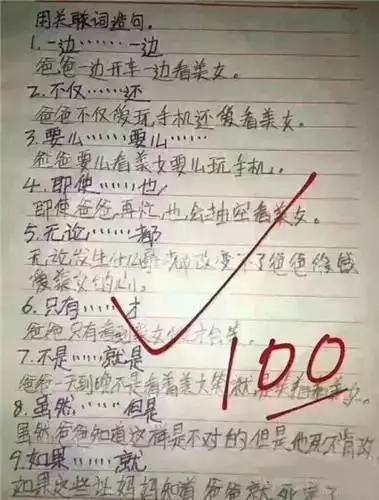 用关联词造句.
1.一边……一边
爸爸一边开车一边看美女。
2.不仅……还
爸爸不仅爱玩手机还爱看美女。
3.要么……要么……
爸爸要么看美女要么玩手机。
4.即使……也,
即使爸爸再忙,也会抽空看美女。
5.无论……都
无论发生什么 都改变不了爸爸
爱美女的心。
6.只有……才
爸爸只有看到美女 才会笑。
7.不是……就是
爸爸一天到晚不是看着美女笑就是
8.虽然……但是
虽然爸爸知道这样是不对的但是他死不肯改
9.如果……就
如果这些让妈妈知道爸爸就死定了
100